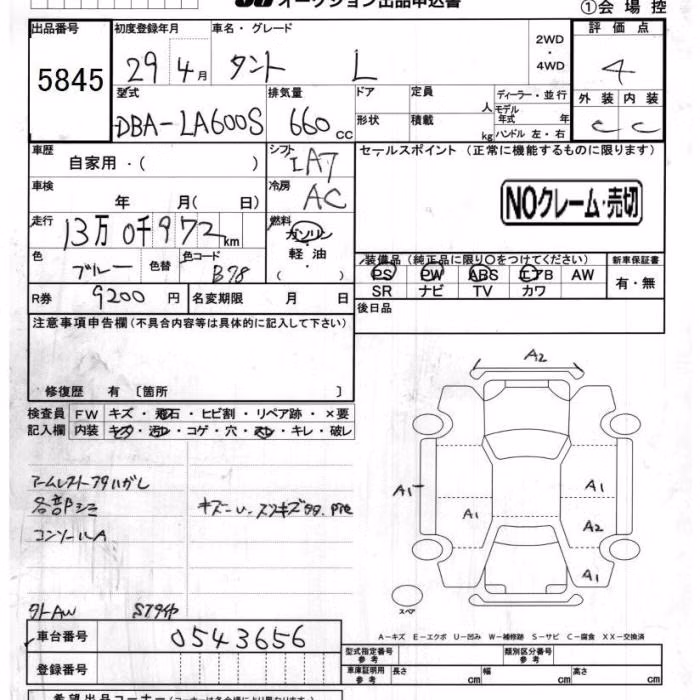 オークション出品申込書
①会場控
出品番号 初度登録年月 車名・グレード 2WD・4WD 評価点
5845 29年4月 タント L 4
型式 排気量 ドア 定員 人 ディーラー・並行 外装 内装
DBA-LA600S 660cc 形状 積載 kg モデル年式 年 ハンドル 左・右 C C
車歴 自家用・( ) シフト IAT セールスポイント (正常に機能するものに限ります)
車検 年 月( 日) 冷房 AC
NOクレーム・売切
走行 13万0千972km 燃料 ガソリン
軽油・( )
色 ブルー 色替 色コード B78
装備品(純正品に限り〇をつけてください) 新車保証書
PS PW ABS エアB AW 有・無
SR ナビ TV カワ
R券 9200円 名変期限 月 日 後日品
注意事項申告欄(不具合内容等は具体的に記入して下さい)
修復歴 有 〔箇所 〕
検査員 FW キズ・飛石・ヒビ割・リペア跡・×要
記入欄 内装 キズ・汚レ・コゲ・穴・スレ・キレ・破レ
アームレストフタハガレ
各部Pシミ
コンソールA
A2
A1
A1
A1
A2
A1
スペア
A-キズ E-エクボ U-凹み W-補修跡 S-サビ C-腐食 XX-交換済
車台番号 0543656
型式指定番号 参考 類別区分番号 参考
登録番号 車庫証明用 参考 長さ cm 幅 cm 高さ cm
希望出品コーナー